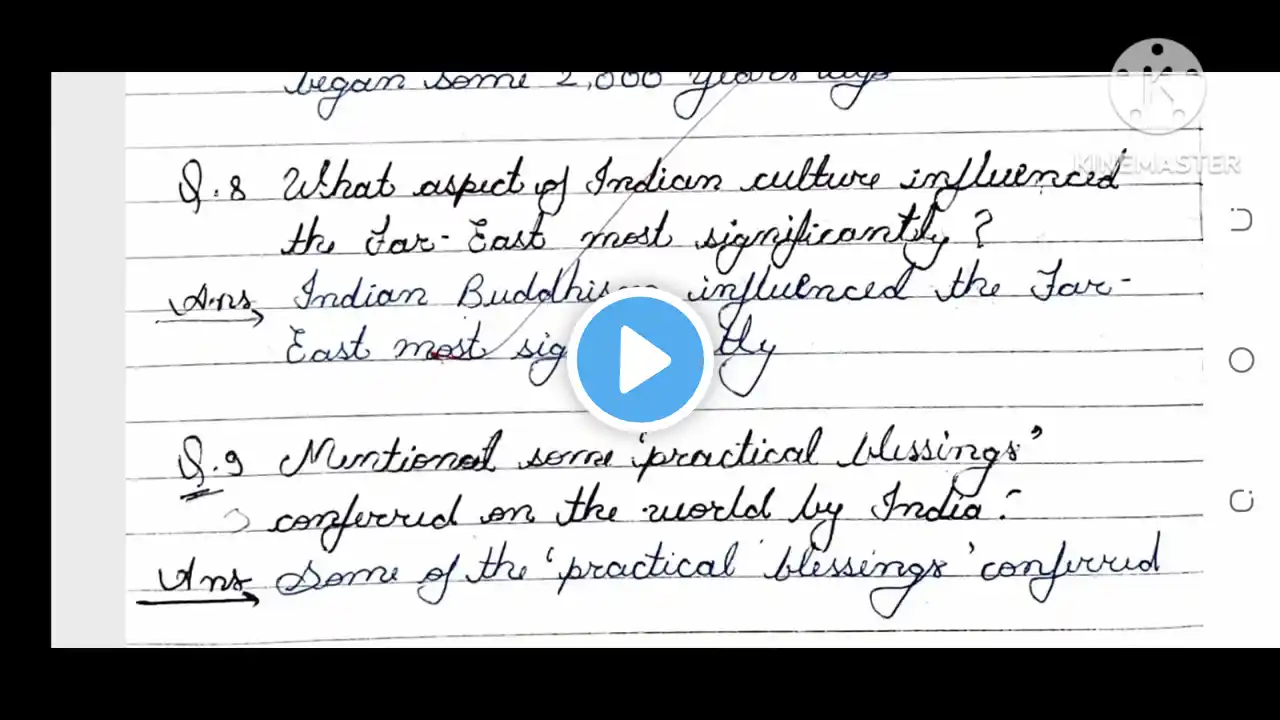 began some 2,000 years ago
KINEMASTER
Q.8 What aspect of Indian culture influenced
the Far-East most significantly?
Ans Indian Buddhism influenced the Far-
East most tly
Q.9 Mentional some 'practical blessings'
conferred on the world by India:
Ans Some of the 'practical blessings' conferred